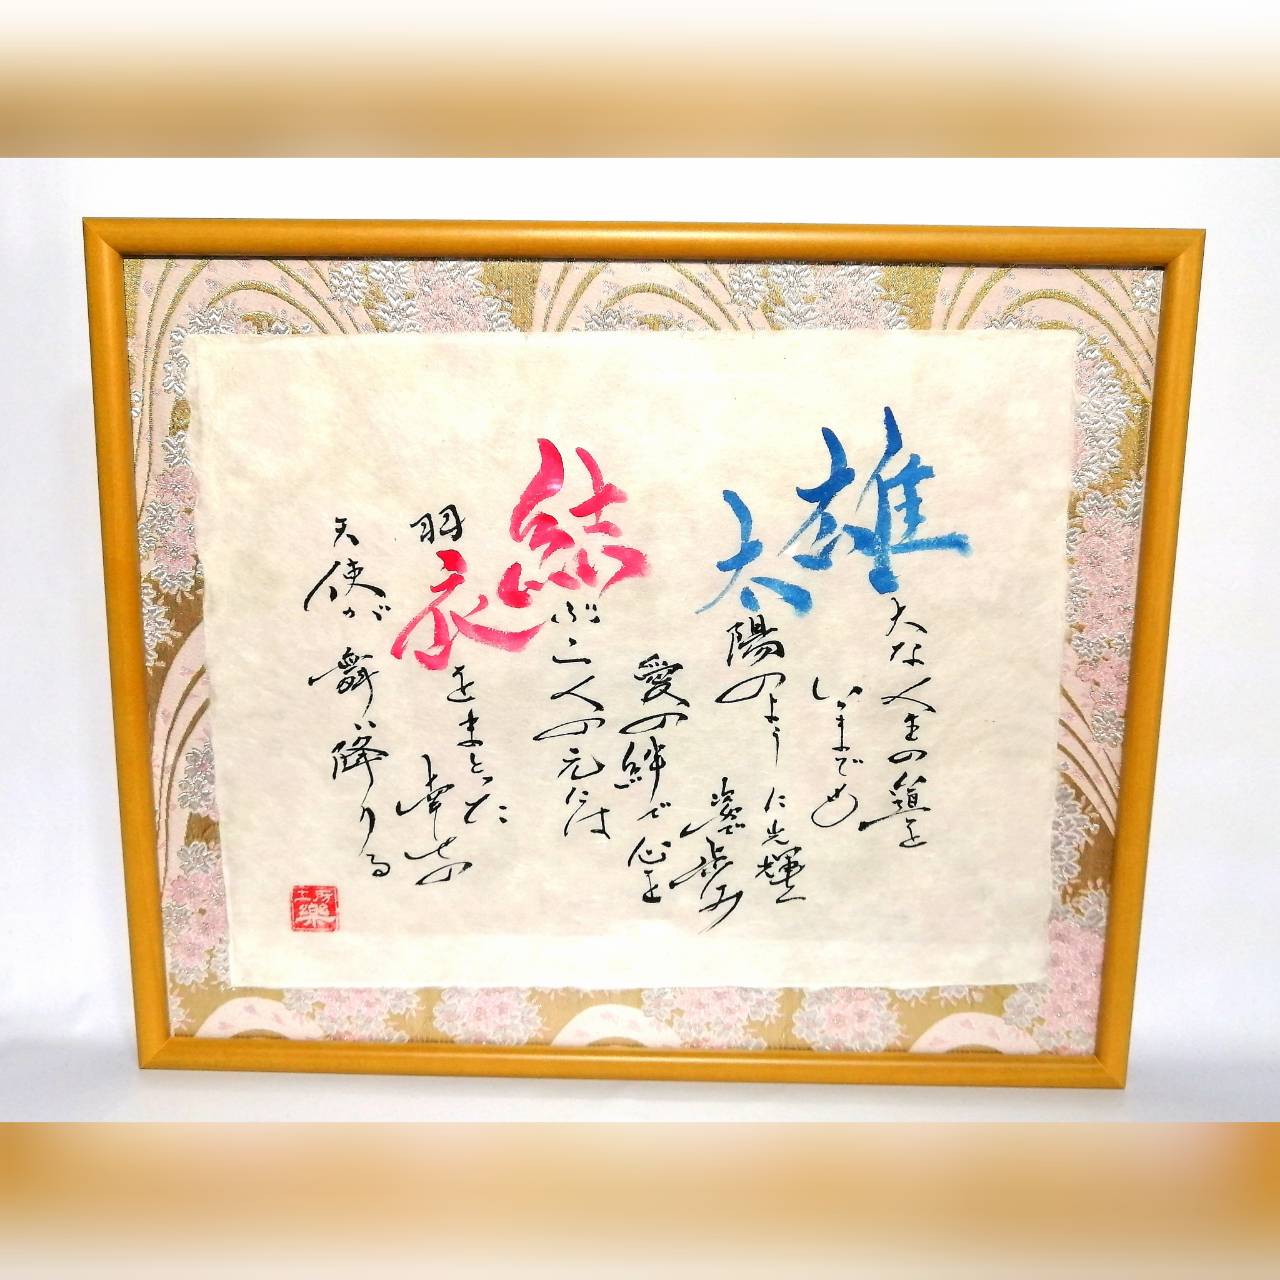 雄大な人生の道を
いつまでも
太陽のように光輝く
姿で歩み
愛の絆で心を
結ぶ二人の元には
羽衣をまとった
幸せの
天使が舞い降りる
樂